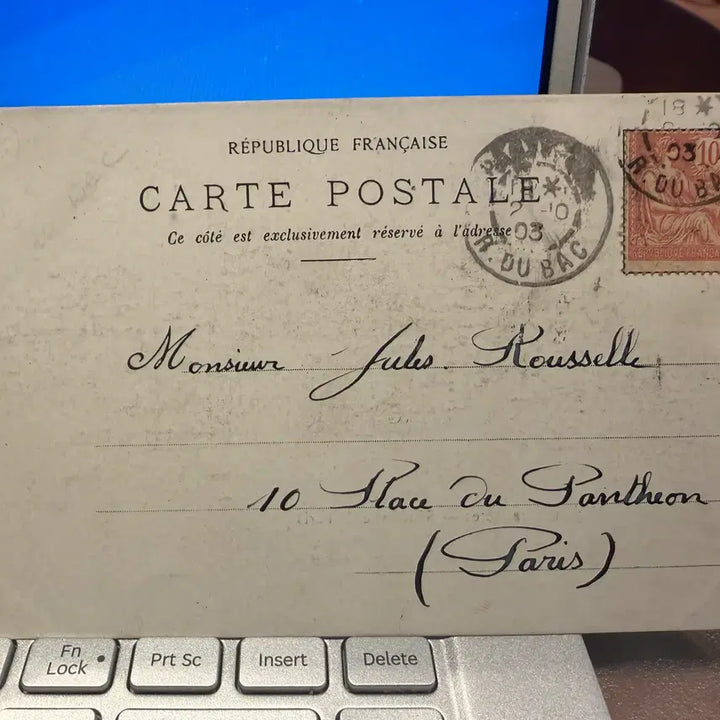 RÉPUBLIQUE FRANÇAISE
CARTE POSTALE
Ce côté est exclusivement réservé à l'adresse
18 *
-10
03
R. DU BAC
18 *
10
03
R. DU BAC
Monsieur Jules Rousselle
10 Place du Pantheon
(Paris)
Fn
Lock
Prt Sc
Insert
Delete